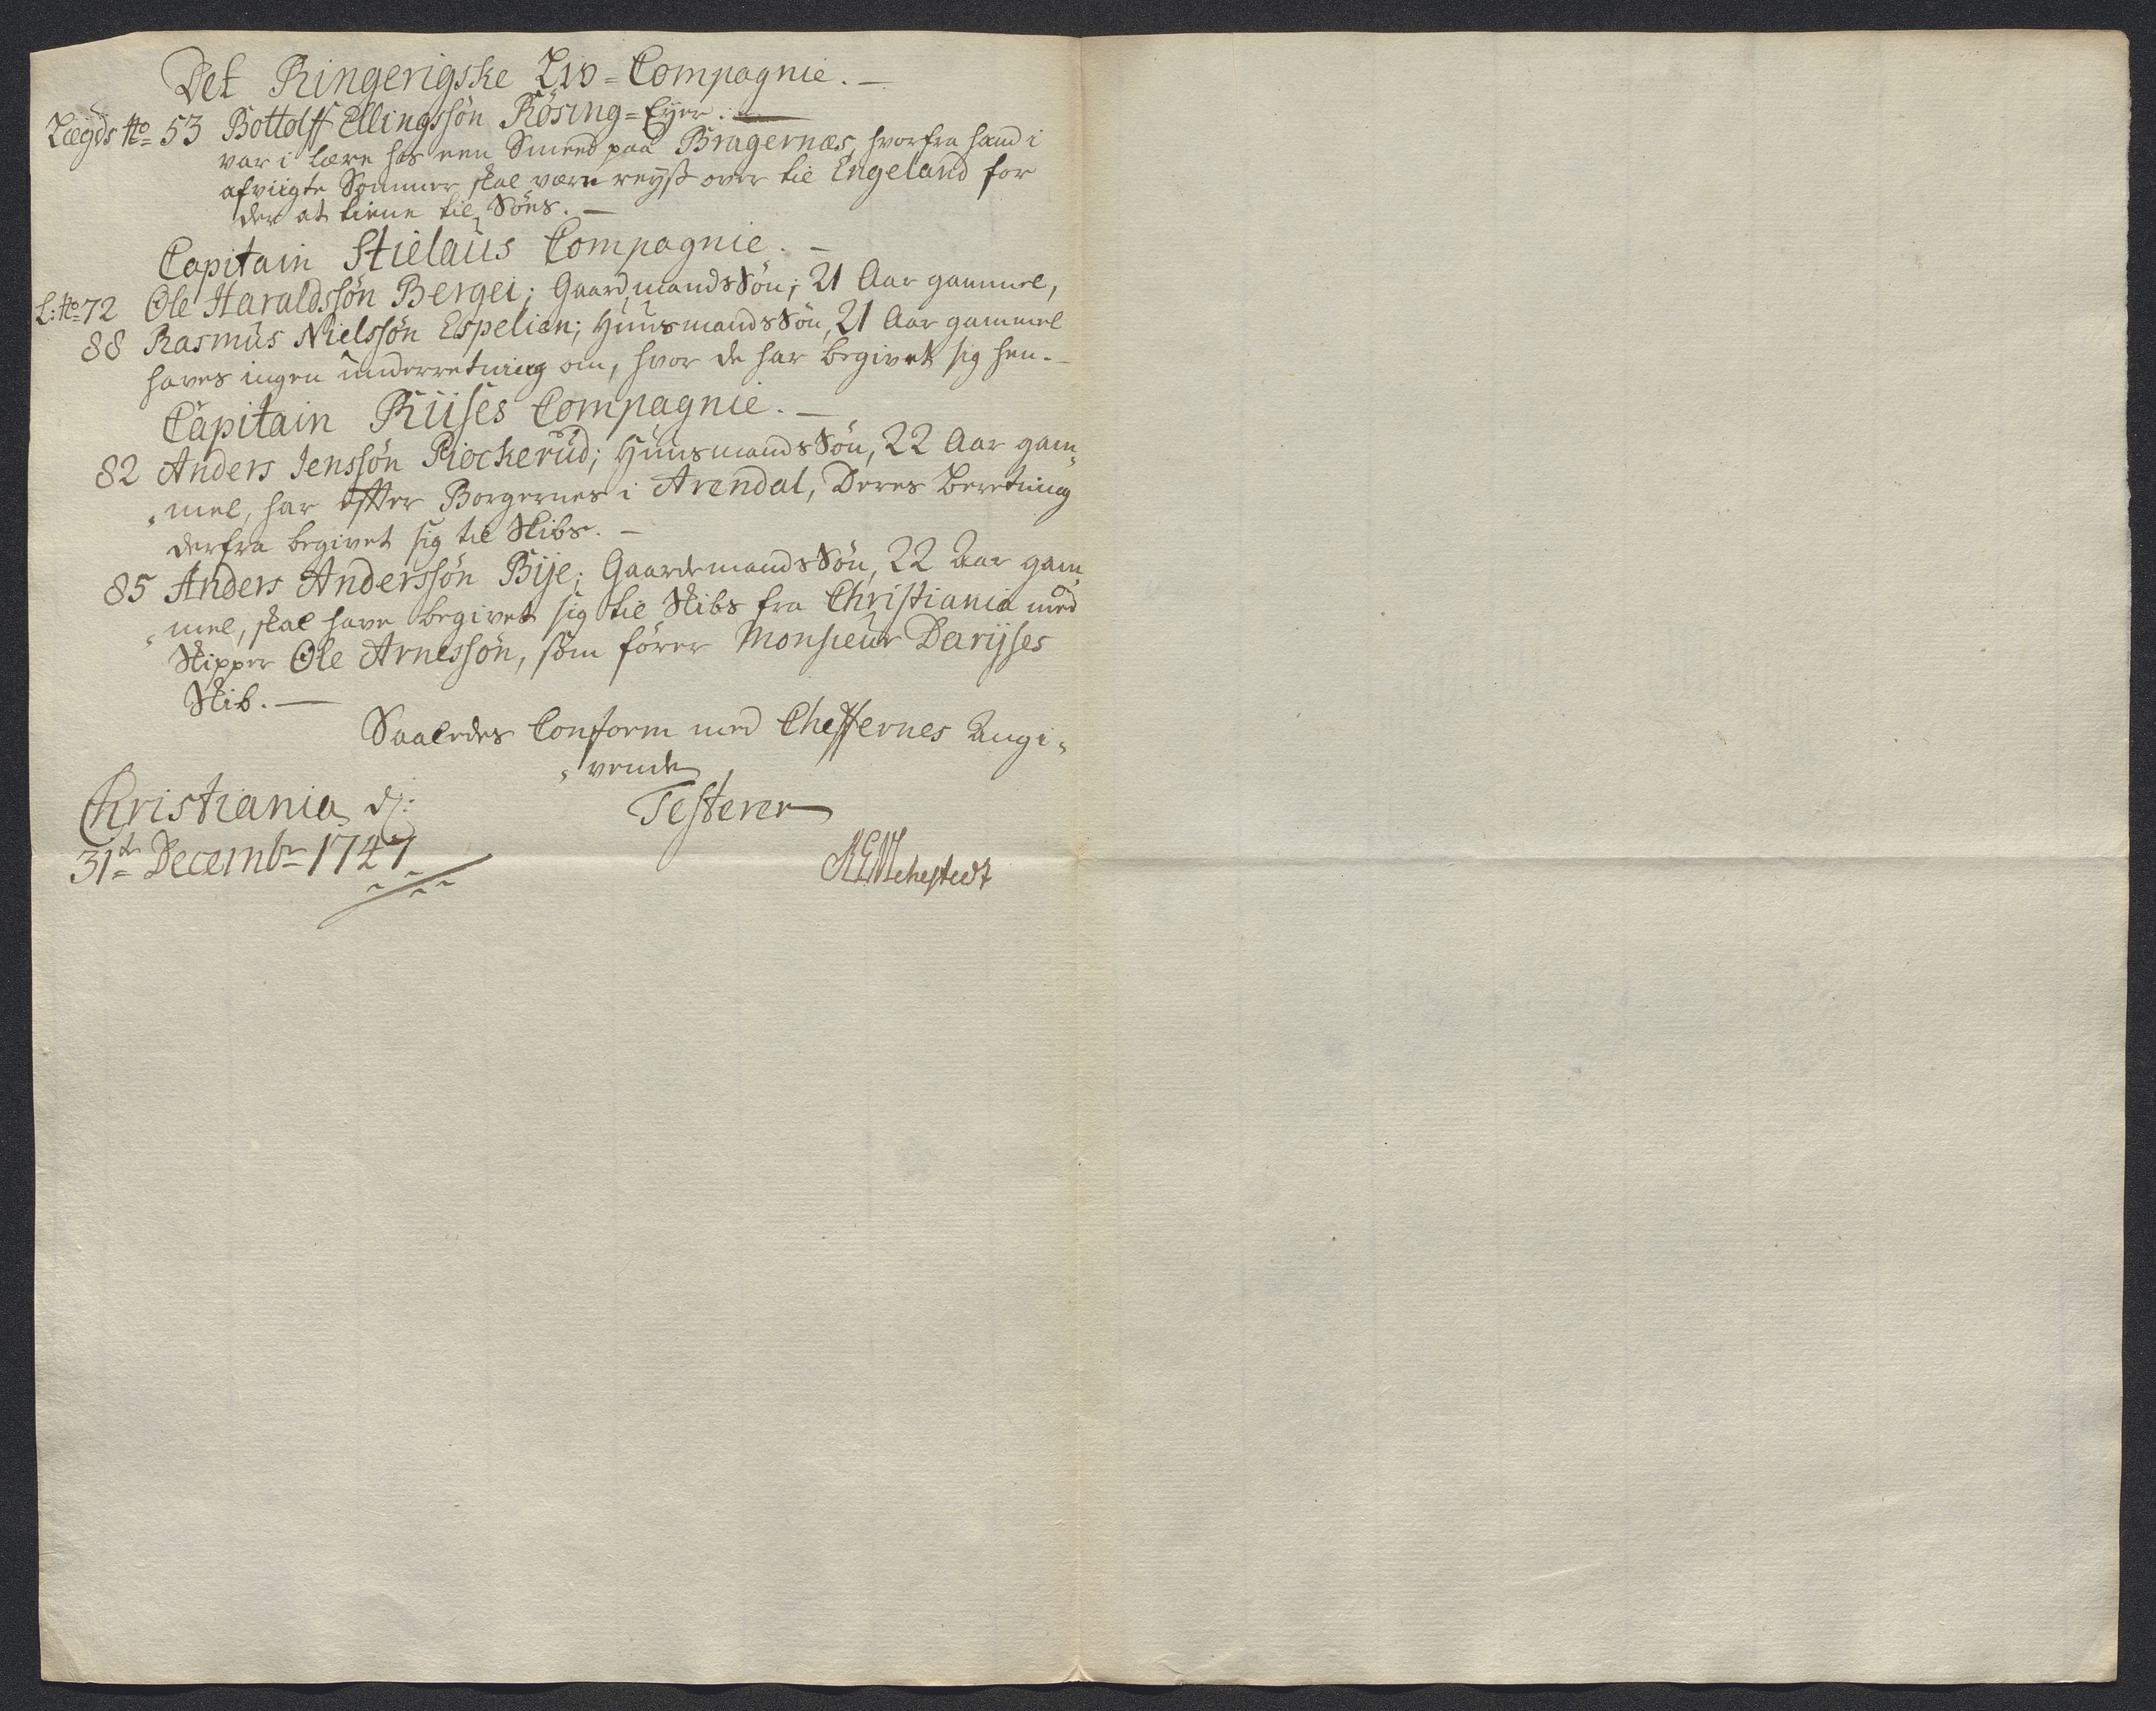 Det Ringerigske Liv=Compagnie. —
Lægds No 53 Bottolff Ellingssøn Røsing=Eyer. —
var i lære hos een Smeed paa Bragernæs, hvorfra hand i
afviigte Sommer skal være reyst over til Engeland for
der at tiene til Søes. —
Capitain Stielaus Compagnie. —
L: No 72 Ole Haraldssøn Bergei; Gaardmands Søn; 21 Aar gammel,
88 Rasmus Nielssøn Espelien; Huusmands Søn, 21 Aar gammel
haves ingen underretning om, hvor de har begivet sig hen. —
Capitain Riises Compagnie. —
82 Anders Jenssøn Piockerud; Huusmands Søn, 22 Aar gam„
„mel, har efter Borgernes i Arendal, Deres Beretning
derfra begivet sig til Skibs. —
85 Anders Anderssøn Bije; Gaardemands Søn, 22 Aar gam„
„mel, skal have begivet sig til Skibs fra Christiania med
Skipper Ole Arnessøn, som fører Monsieur Darijses
Skib. —
Saaledes Conform med Cheffernes Angi„
„vende
Christiania d:
Testerer
31te Decembr 1747